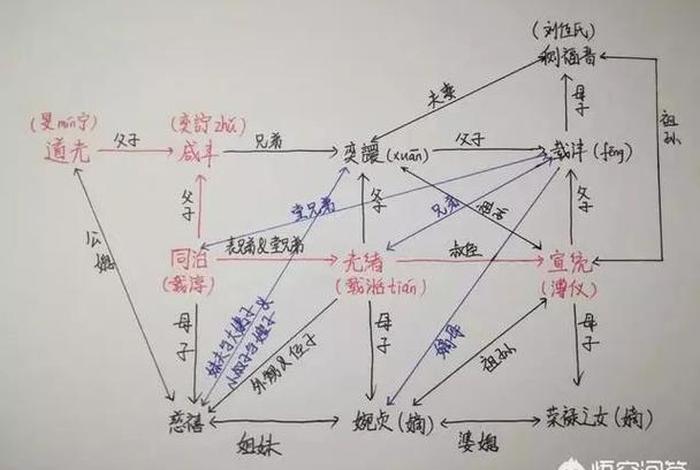 (刘佳氏)
侧福晋
夫妻
母子
祖孙
(旻mín宁)
道光
父子
(奕詝zhǔ)
咸丰
兄弟
奕譞(xuān)
父子
载沣(fēng)
公媳
父子
堂兄弟
父子
兄弟
祖孙
父子
同治
(载淳)
表兄弟&堂兄弟
光绪
(载湉tián)
叔侄
宣统
(溥仪)
母子
妹夫与大姨子&
小叔子与嫂子
外甥&侄子
母子
嫡母
祖孙
母子
慈禧
姐妹
婉贞(嫡)
婆媳
荣禄之女(嫡)
悟空问答